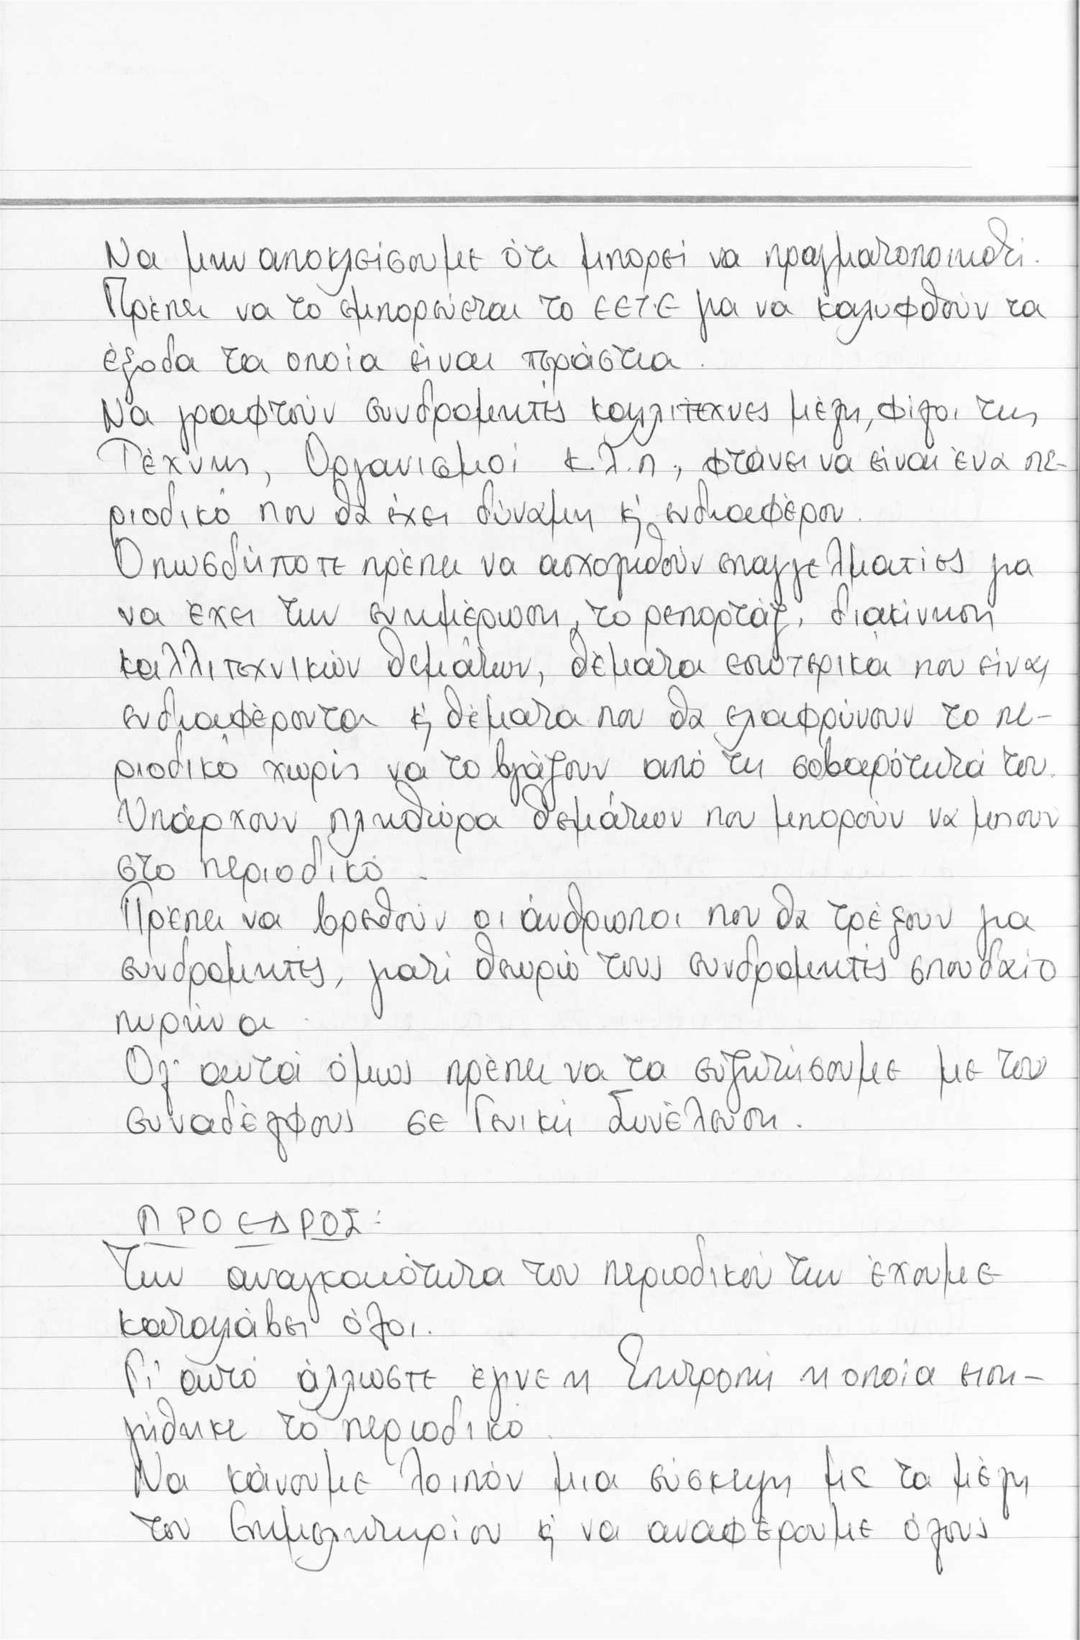 Να μην αποκλείσουμε ότι μπορεί να πραγματοποιηθεί.
Πρέπει να το εμπορεύεται το ΕΕΤΕ για να καλυφθούν τα
έξοδα τα οποία είναι τεράστια.
Να γραφτούν συνδρομητές καλλιτέχνες μέλη, φίλοι της
Τέχνης, Οργανισμοί κ.λ.π., φτάνει να είναι ένα πε-
ριοδικό που θα έχει δύναμη κ' ενδιαφέρον.
Οπωσδήποτε πρέπει να ασχοληθούν επαγγελματίες για
να έχει την ενημέρωση, το ρεπορτάζ, διακίνηση
καλλιτεχνικών θεμάτων, θέματα εσωτερικά που είναι
ενδιαφέροντα κ' θέματα που θα ελαφρύνουν το πε-
ριοδικό χωρίς να το βγάζουν από τη σοβαρότητά του.
Υπάρχουν πληθώρα θεμάτων που μπορούν να μπουν
στο περιοδικό.
Πρέπει να βρεθούν οι άνθρωποι που θα τρέξουν για
συνδρομητές, γιατί θεωρώ τους συνδρομητές σπουδαίο
πυρήνα.
Ολ' αυτά όμως πρέπει να τα συζητήσουμε με του
συναδέλφους σε Γενική Συνέλευση.
ΠΡΟΕΔΡΟΣ:
Την αναγκαιότητα του περιοδικού την έχουμε
καταλάβει όλοι.
Γι' αυτό άλλωστε έγινε η Επιτροπή η οποία ειση-
γήθηκε το περιοδικό.
Να κάνουμε λοιπόν μια σύσκεψη με τα μέλη
του Επιμελητηρίου κ' να αναφέρουμε όλους